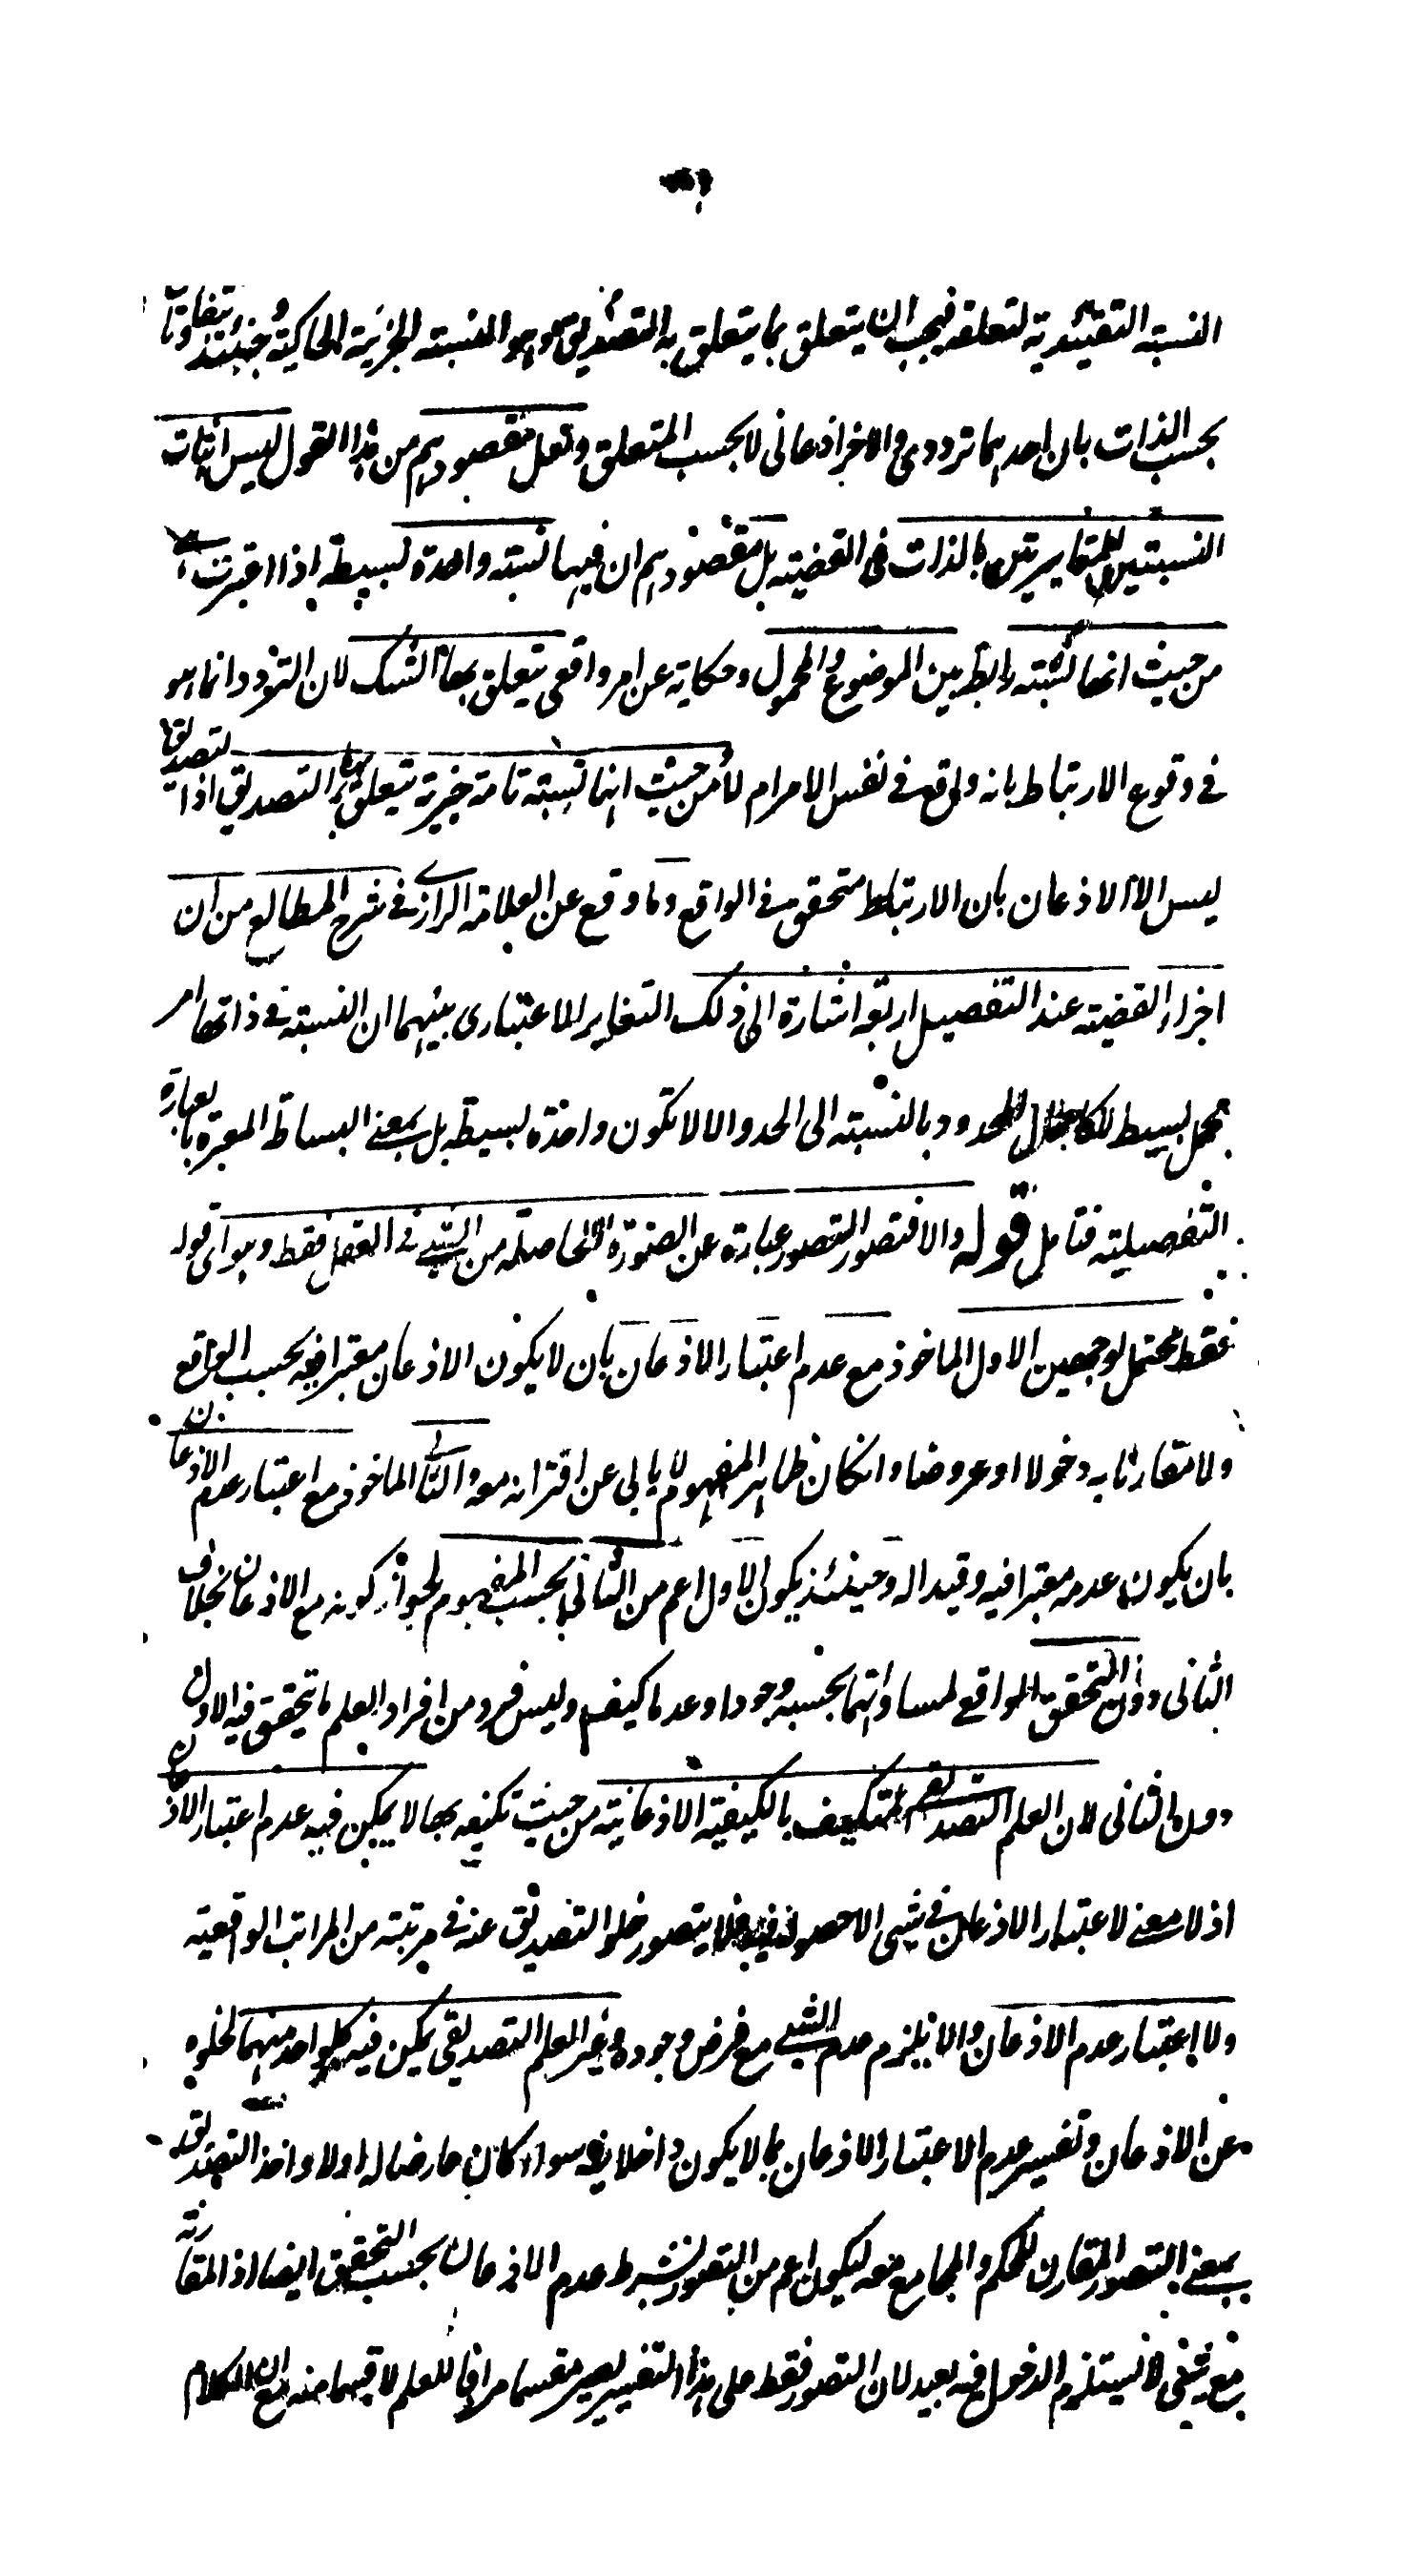 النسبته التقئيدية لتعلقه فيجب ان يتعلق بما يتعلق به التصديق وهو النسبته الخبرية الحاكية فحينئذ يتفاوتا
بحسب الذات بان احدهما ترددى والاخر اذعانى لا بحسب المتعلق ولعل مقصودهم من هذا القول ليس اثبات
النسبتين المتغايرتين بالذات فى القضيته بل مقصودهم ان فيها نسبته واحدة بسيطة اذا اعتبرت
من حيث انها نسبته رابطة بين الموضوع والمحمول وحكاية عن امر واقعى يتعلق بها الشك لان التردد انما هو
فى وقوع الارتباط بانه واقع فى نفس الامر ام لا ومن حيث انها نسبته تامة خبرية يتعلق بها التصديق اذا لتصديق
ليس الا الاذعان بان الارتباط متحقق فى الواقع وما وقع عن العلامة الرازى فى شرح المطالع من ان
اجزاء القضيته عند التفصيل اربعة اشارة الى ذلك التغاير الاعتبارى بينهما ان النسبته فى ذاتها امر
مجمل بسيط كاجمال المحدود بالنسبته الى الحد والا لا تكون واحدة بسيطة بل بمعنى البساطة المعبرة بالعبارة
التفصيلية فتامل قوله والا فتصور التصور عبارة عن الصورة الحاصلة من الشيء فى العقل فقط وهو اى قوله
فقط محتمل لوجهين الاول الماخوذ مع عدم اعتبار الاذعان بان لا يكون الاذعان معتبرا فيه بحسب الواقع
ولا مقارنا به دخولا او عروضا وانكان ظاهر المفهوم لا يابى عن اقترانه معه والثانى الماخوذ مع اعتبار عدم الاذعان
بان يكون عدمه معتبرا فيه وقيدا له وحينئذ يكون الاول اعم من الثانى بحسب المفهوم لجواز كونه مع الاذعان بخلاف
الثانى دون التحقق الواقعى لمساواتهما بحسبه وجودا وعدما كيف وليس فرد من افراد العلم ما يتحقق فيه الاول
دون الثانى لان العلم التصديقى المتكيف بالكيفية الاذعانية من حيث تكيفه بها لا يمكن فيه عدم اعتبار الاذعان
اذ لا معنى لاعتبار الاذعان فى شيء الا حصوله فيه فلا يتصور خلو التصديق عنه فى مرتبته من المراتب الواقعية
ولا اعتبار عدم الاذعان والا يلزم عدم الشيء مع فرض وجوده وغير العلم التصديقى يمكن فيه كلواحد منهما لخلوه
عن الاذعان وتفسير عدم الاعتبار الاذعان بما لا يكون داخلا فيه سواء كان عارضا له اولا واخذ التصديق
بمعنى التصور المقارن للحكم والمجامع معه ليكون اعم من التصور بشرط عدم الاذعان بحسب التحقق ايضا اذ المقارنة
مع شيء لا يستلزم الدخول فيه بعيد لان التصور فقط على هذا التفسير يصير مقسما مرادفا للعلم لا قسما منه مع ان الكلام